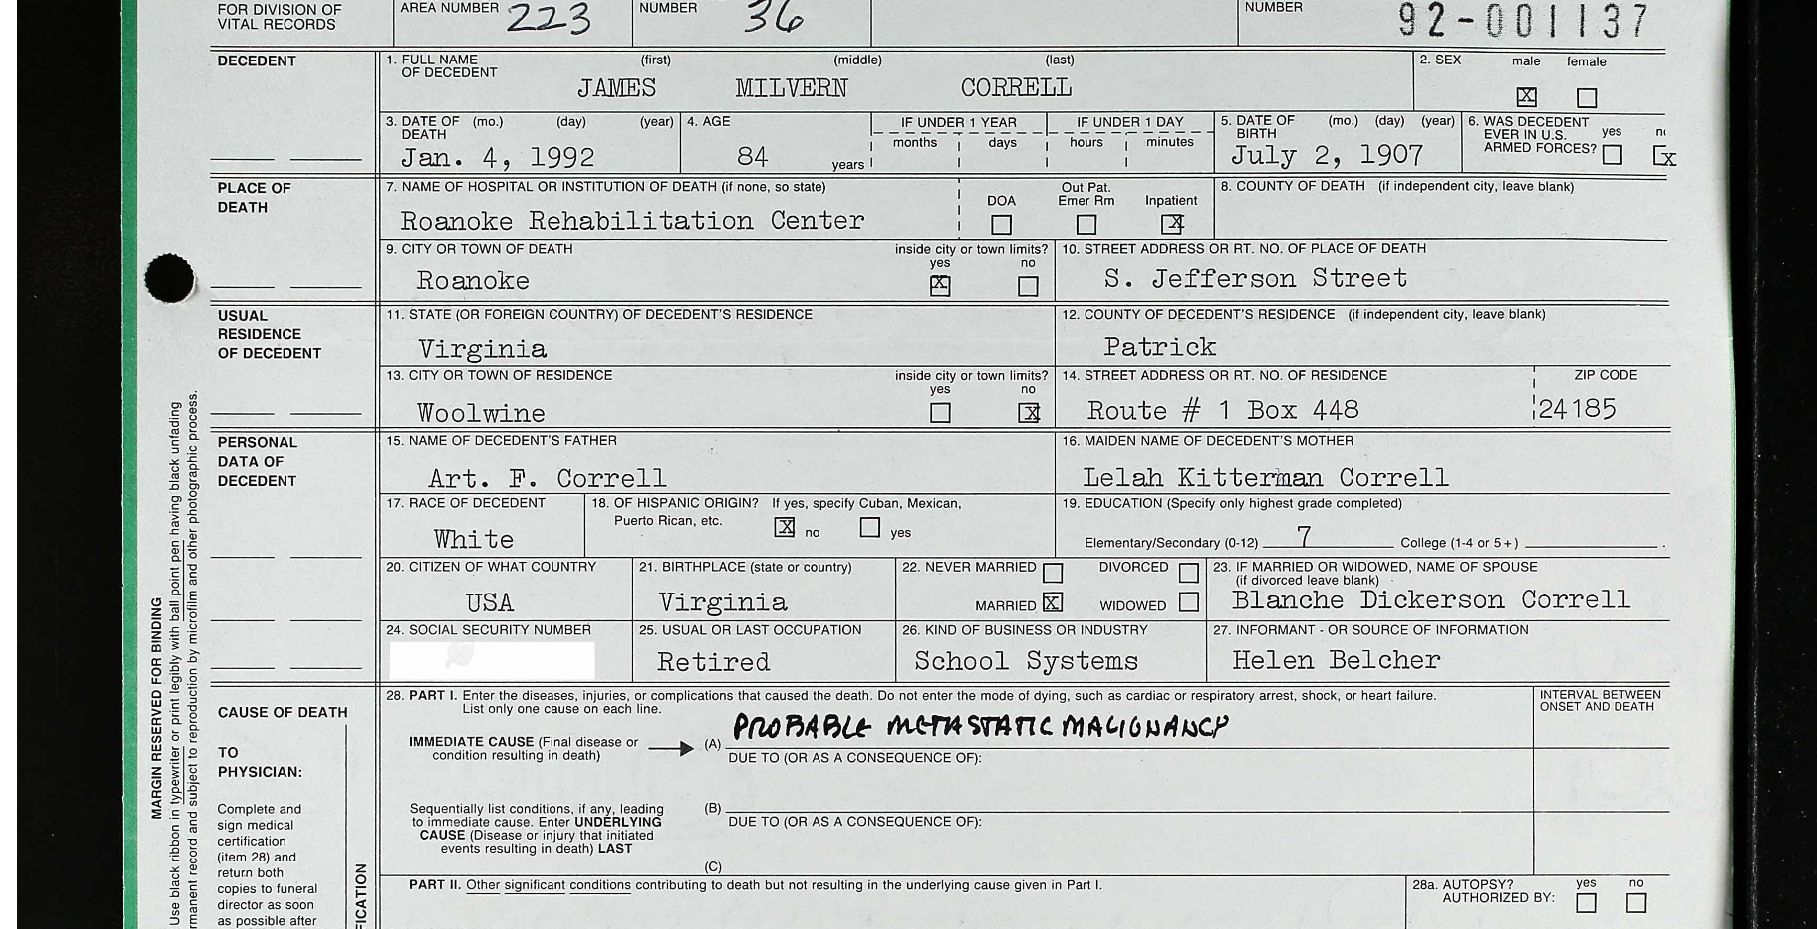 FOR DIVISION OF VITAL RECORDS
AREA NUMBER 223
NUMBER 36
NUMBER 92-001137
DECEDENT
1. FULL NAME OF DECEDENT (first) (middle) (last)
JAMES MILVERN CORRELL
2. SEX male female
X
3. DATE OF DEATH (mo.) (day) (year)
Jan. 4, 1992
4. AGE
84 years
IF UNDER 1 YEAR
months days
IF UNDER 1 DAY
hours minutes
5. DATE OF BIRTH (mo.) (day) (year)
July 2, 1907
6. WAS DECEDENT EVER IN U.S. ARMED FORCES? yes
X
PLACE OF DEATH
7. NAME OF HOSPITAL OR INSTITUTION OF DEATH (if none, so state)
Roanoke Rehabilitation Center
DOA
Out Pat. Emer Rm
Inpatient
X
8. COUNTY OF DEATH (if independent city, leave blank)
9. CITY OR TOWN OF DEATH
Roanoke
inside city or town limits?
yes no
X
10. STREET ADDRESS OR RT. NO. OF PLACE OF DEATH
S. Jefferson Street
USUAL RESIDENCE OF DECEDENT
11. STATE (OR FOREIGN COUNTRY) OF DECEDENT'S RESIDENCE
Virginia
12. COUNTY OF DECEDENT'S RESIDENCE (if independent city, leave blank)
Patrick
13. CITY OR TOWN OF RESIDENCE
Woolwine
inside city or town limits?
yes no
X
14. STREET ADDRESS OR RT. NO. OF RESIDENCE
Route # 1 Box 448
ZIP CODE
24185
PERSONAL DATA OF DECEDENT
15. NAME OF DECEDENT'S FATHER
Art. F. Correll
16. MAIDEN NAME OF DECEDENT'S MOTHER
Lelah Kitterman Correll
17. RACE OF DECEDENT
White
18. OF HISPANIC ORIGIN? If yes, specify Cuban, Mexican,
Puerto Rican, etc. X no yes
19. EDUCATION (Specify only highest grade completed)
Elementary/Secondary (0-12) 7 College (1-4 or 5+)
20. CITIZEN OF WHAT COUNTRY
USA
21. BIRTHPLACE (state or country)
Virginia
22. NEVER MARRIED DIVORCED
MARRIED X WIDOWED
23. IF MARRIED OR WIDOWED, NAME OF SPOUSE
(if divorced leave blank)
Blanche Dickerson Correll
24. SOCIAL SECURITY NUMBER
25. USUAL OR LAST OCCUPATION
Retired
26. KIND OF BUSINESS OR INDUSTRY
School Systems
27. INFORMANT - OR SOURCE OF INFORMATION
Helen Belcher
CAUSE OF DEATH
28. PART I. Enter the diseases, injuries, or complications that caused the death. Do not enter the mode of dying, such as cardiac or respiratory arrest, shock, or heart failure.
List only one cause on each line.
INTERVAL BETWEEN ONSET AND DEATH
IMMEDIATE CAUSE (Final disease or condition resulting in death)
(A) PROBABLE METASTATIC MALIGNANCY
DUE TO (OR AS A CONSEQUENCE OF):
Sequentially list conditions, if any, leading to immediate cause. Enter UNDERLYING CAUSE (Disease or injury that initiated events resulting in death) LAST
(B)
DUE TO (OR AS A CONSEQUENCE OF):
(C)
PART II. Other significant conditions contributing to death but not resulting in the underlying cause given in Part I.
28a. AUTOPSY? AUTHORIZED BY: yes no
TO PHYSICIAN:
Complete and
sign medical
certification
(item 28) and
return both
copies to funeral
director as soon
as possible after
MARGIN RESERVED FOR BINDING
Use black ribbon in typewriter or print legibly with ball point pen having black unfading
rmanent record and subject to reproduction by microfilm and other photographic process.
FICATION